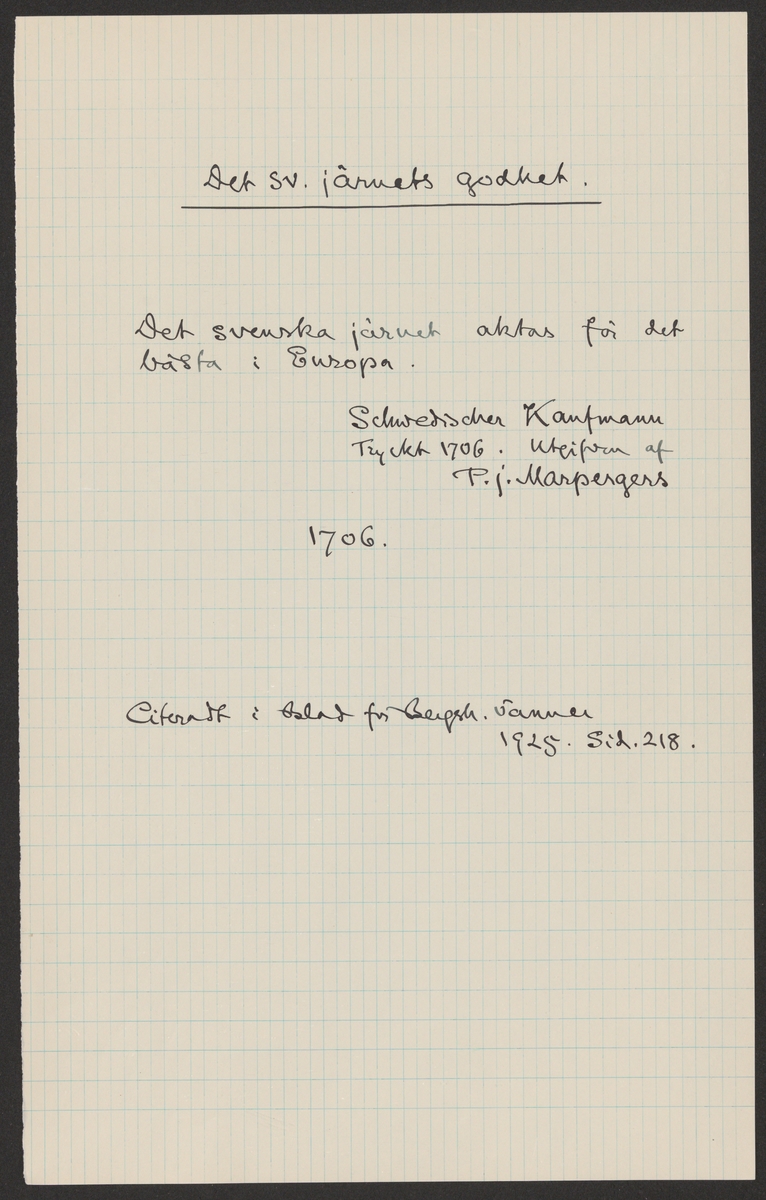 Det sv. järnets godhet.
Det svenska järnet aktas för det
bästa i Europa.
Schwedischer Kaufmann
Tryckt 1706. Utgifven af
P.j. Marpergers
1706.
Citeradt i Blad för Bergsh. vänner
1925. Sid. 218.